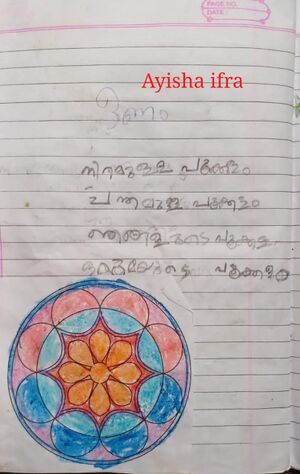 PAGE NO.
DATE:
Ayisha ifra
ഓണം
നിറമുള്ള പൂക്കളം
ചന്തമുള്ള പൂക്കളം
ഞങ്ങളുടെ പൂക്കളം
ഒരുമയുടെ പൂക്കളം